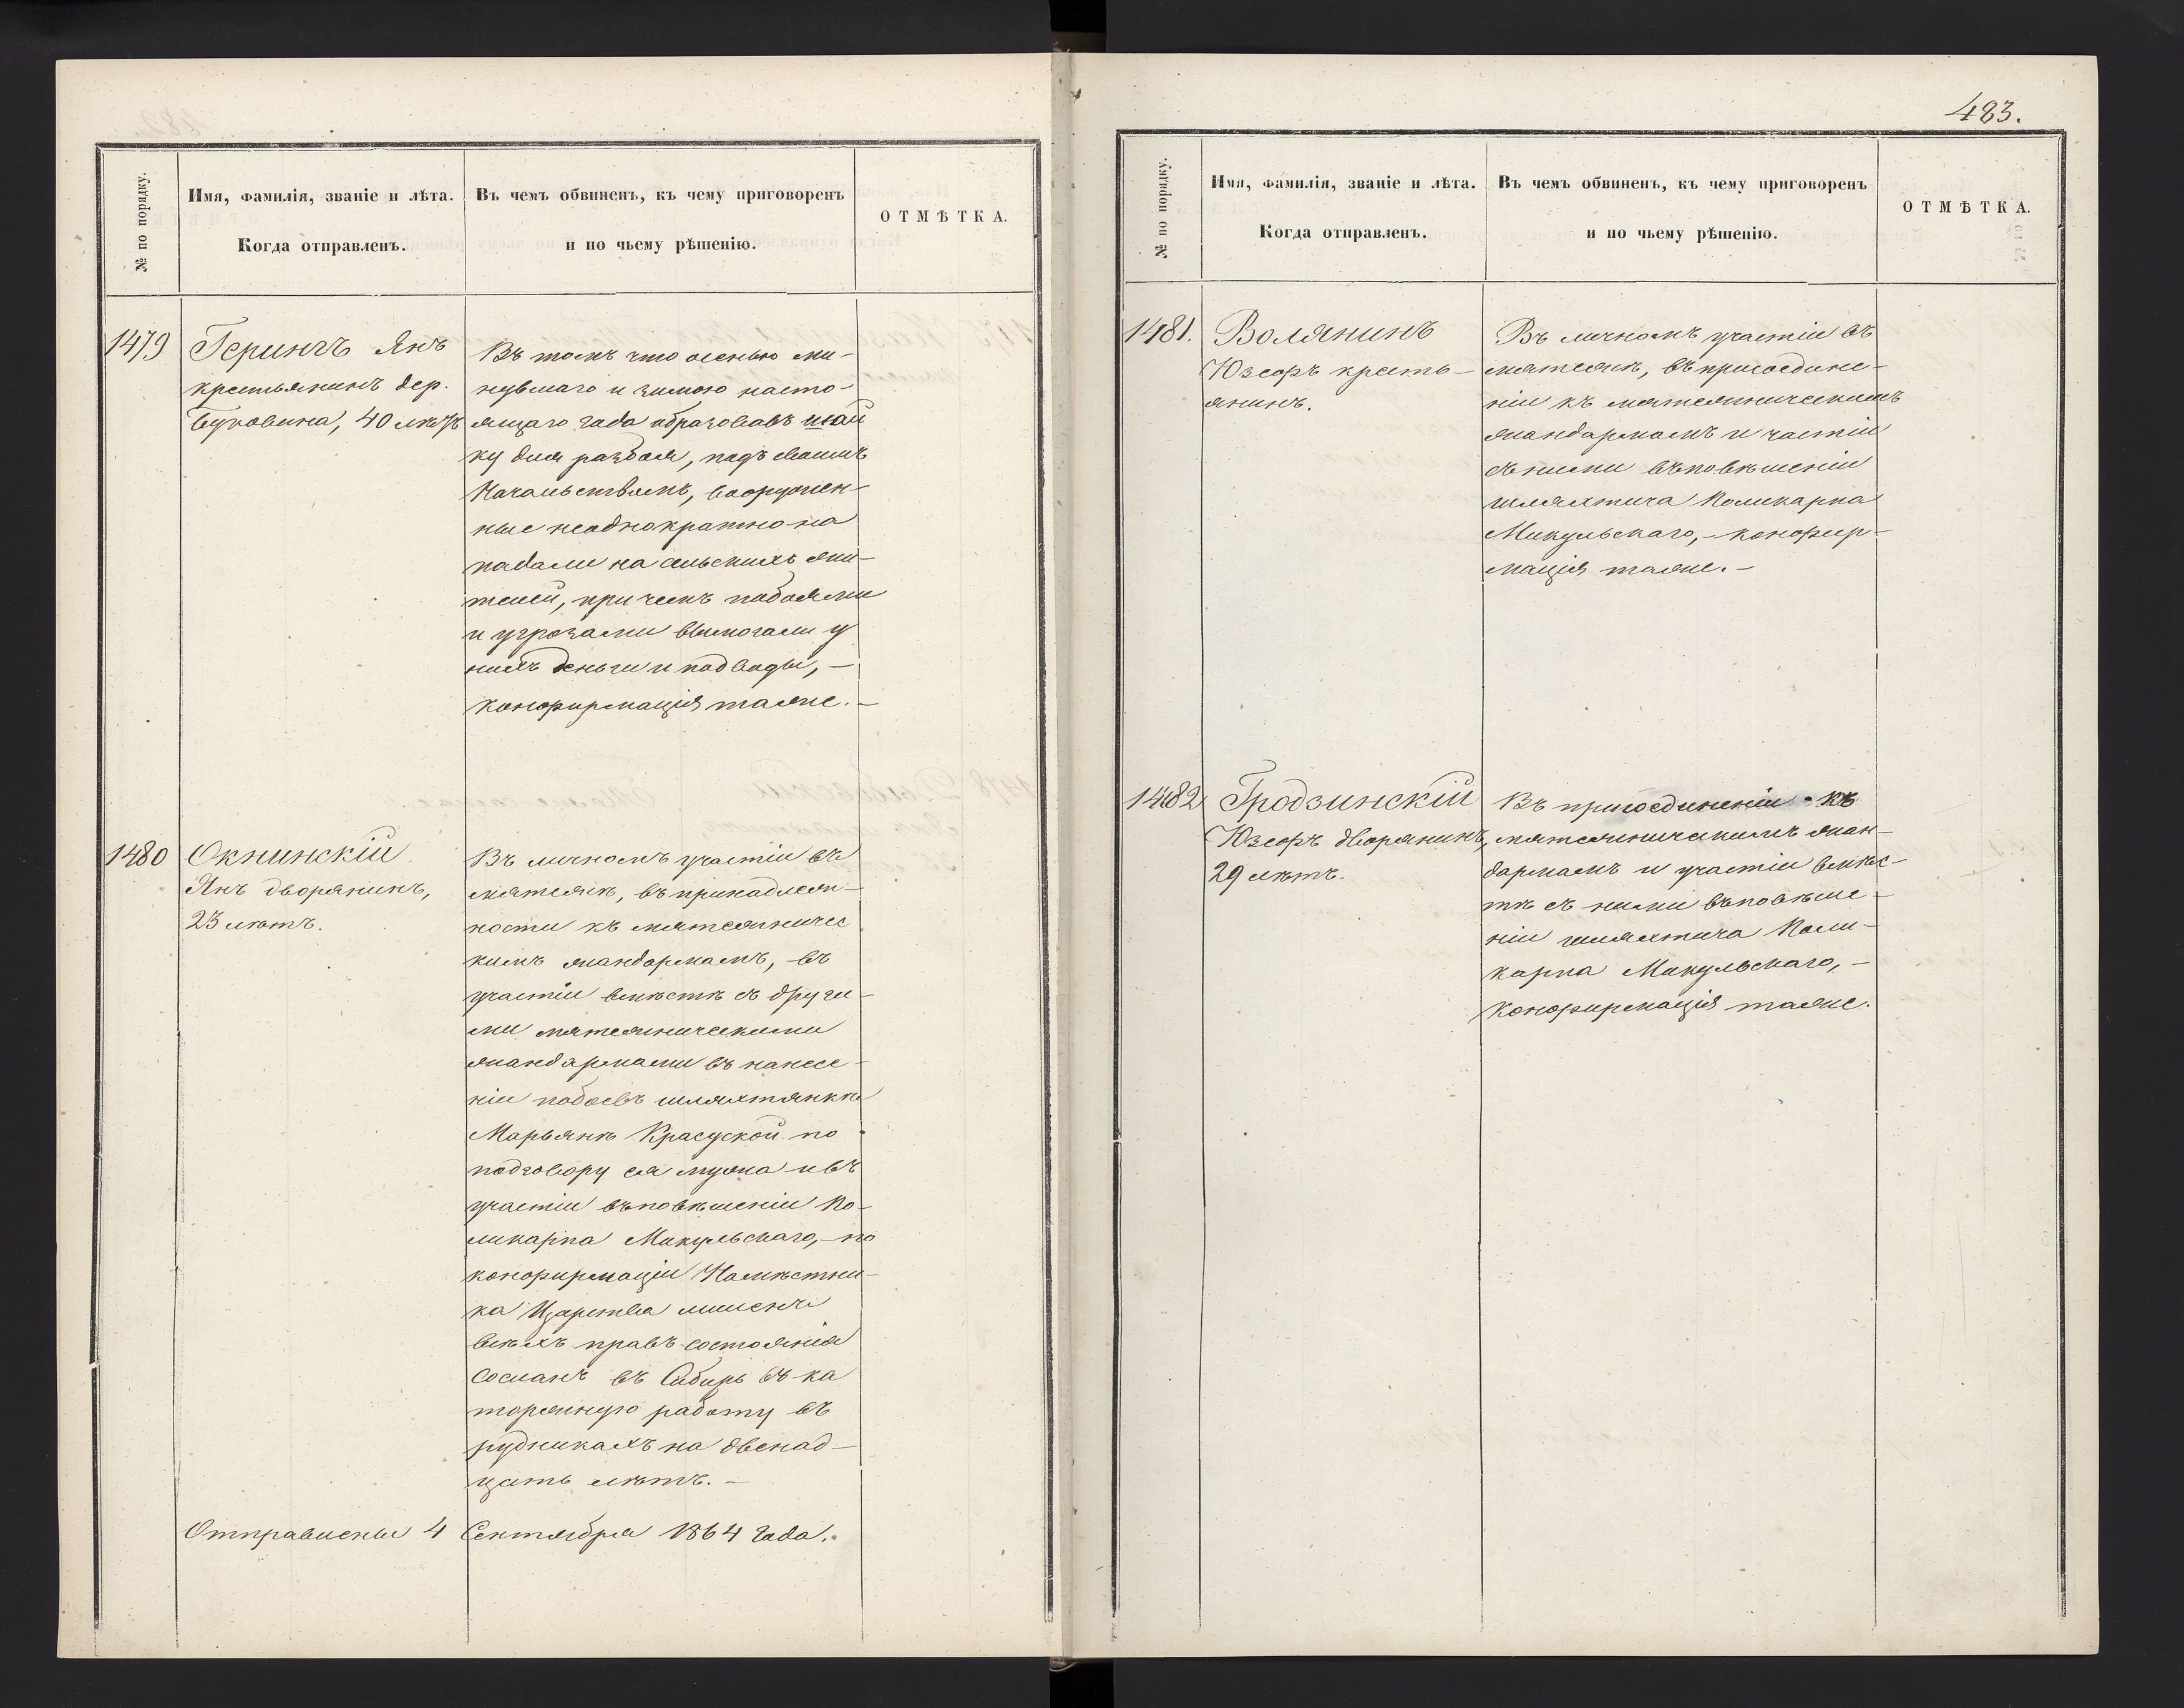 № по порядку.
Имя, фамилія, званіе и лѣта.
Когда отправленъ.
Въ чемъ обвиненъ, къ чему приговоренъ
и по чьему рѣшенію.
ОТМѢТКА.
1479
Герингъ Янъ
крестьянинъ дер.
Буковина, 40 лѣтъ
Въ томъ что осенью ми-
нувшаго и зимою насто-
ящаго года образовавъ шай
ку для разбоя, подъ своимъ
Начальствомъ, вооружен-
ные неоднократно на
падали на сельскихъ жи-
телей, при чемъ побоями
и угрозами вымогали у
нихъ деньги и подводы, -
конфирмація таже. -
1480
Окнинскій
Янъ дворянинъ,
23 лѣтъ.
Въ личномъ участіи въ
мятежѣ, въ принадлеж-
ности къ мятежничес
кимъ жандармамъ, въ
участіи вмѣстѣ съ други-
ми мятежническими
жандармами въ нанесе-
ніи побоевъ шляхтянкѣ
Марьянѣ Красуской по
подговору ея мужа и въ
участіи въ повѣшеніи По-
ликарпа Микульскаго, - по
конфирмаціи Намѣстни-
ка Царства лишенъ
всѣхъ правъ состоянія
сосланъ въ Сибирь въ ка
торжную работу въ
рудникахъ на двенад-
цать лѣтъ. -
Отправлены 4 Сентября 1864 года.
483.
№ по порядку.
Имя, фамилія, званіе и лѣта.
Когда отправленъ.
Въ чемъ обвиненъ, къ чему приговоренъ
и по чьему рѣшенію.
ОТМѢТКА.
1481.
Волянинъ
Юзефъ кресть-
янинъ.
Въ личномъ участіи въ
мятежѣ, въ присоедине-
ніи къ мятежническимъ
жандармамъ и частіи
съ ними въ повѣшеніи
шляхтича Поликарпа
Микульскаго, - конфир-
мація таже. -
1482
Гродзинскій
Юзефъ дворянинъ,
29 лѣтъ.
Въ присоединеніи къ
мятежническимъ жан-
дармамъ и участіи вмѣс-
тѣ съ ними въ повѣше-
ніи шляхтича Поли-
карпа Микульскаго, -
конфирмація таже.